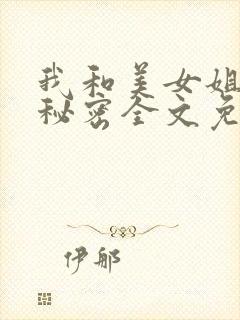 我和美女姐
秘密全文免
伊那